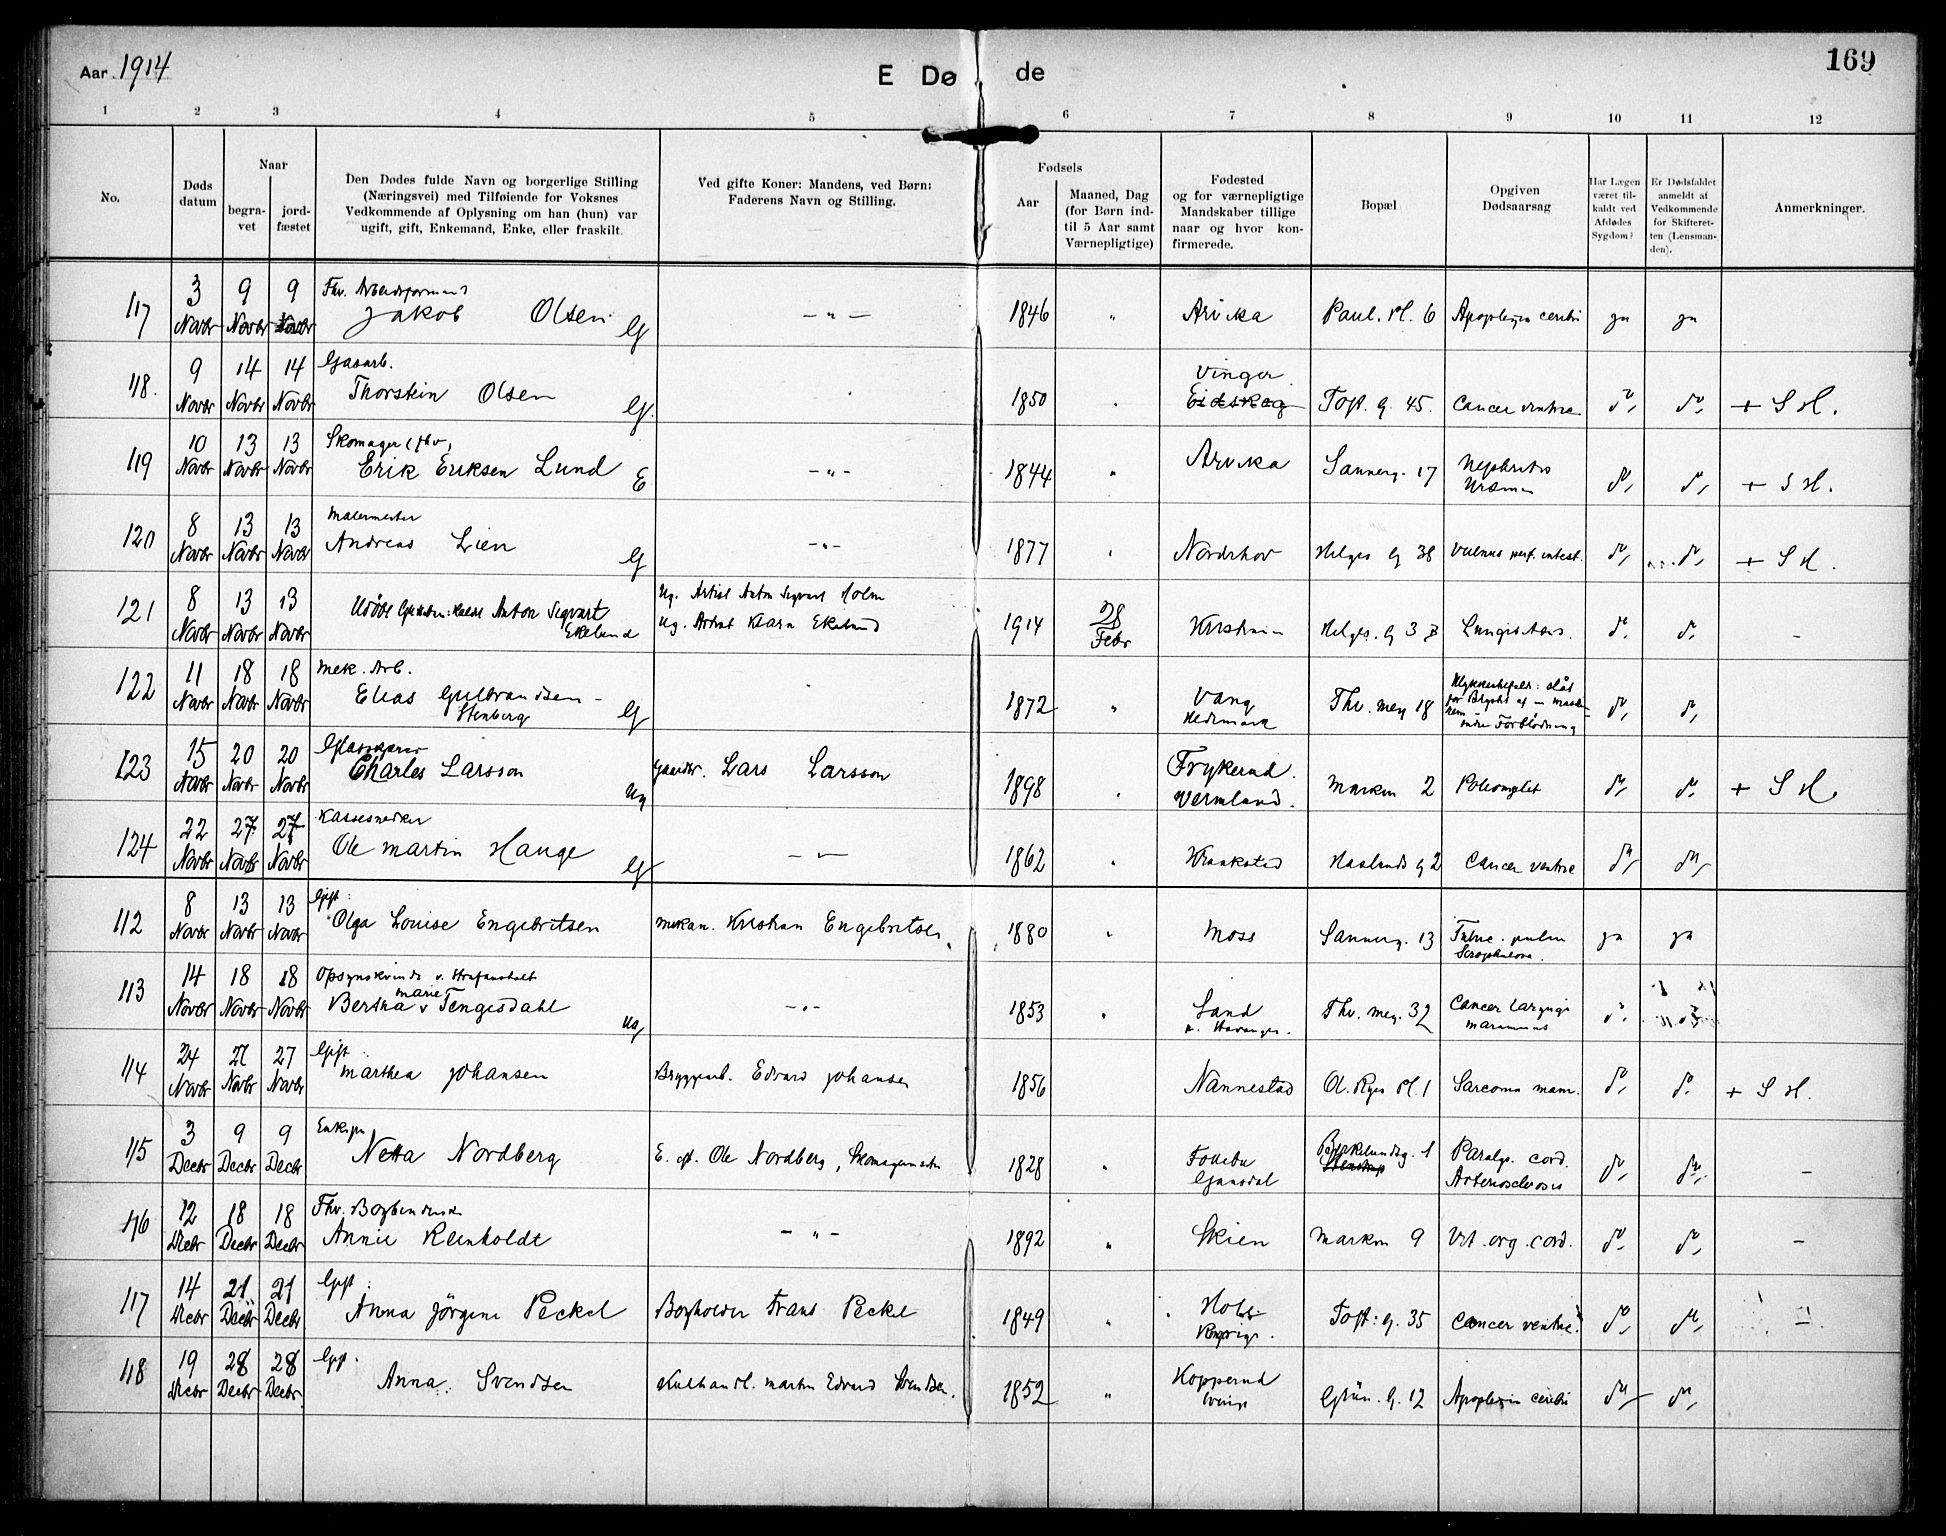 Aar 1914
E Dø de
169
1 2 3 4 5 6 7 8 9 10 11 12
No.
Døds datum
Naar
begra-vet
jord-fæstet
Den Dødes fulde Navn og borgerlige Stilling
(Næringsvei) med Tilføiende for Voksnes
Vedkommende af Oplysning om han (hun) var
ugift, gift, Enkemand, Enke, eller fraskilt.
Ved gifte Koner: Mandens, ved Børn:
Faderens Navn og Stilling.
Fødsels
Aar
Maaned, Dag
(for Børn ind-
til 5 Aar samt
Værnepligtige)
Fødested
og for værnepligtige
Mandskaber tillige
naar og hvor kon-
firmerede.
Bopæl
Opgiven
Dødsaarsag
Har Lægen
været til-
kaldt ved
Afdødes
Sygdom?
Er Dødsfaldet
anmeldt af
Vedkommende
for Skifteret-
ten (Lensman-
den).
Anmerkninger.
117 3 Novbr 9 Novbr 9 Novbr Fhv. Jakob Olsen G — „ — 1846 „ Arvika Paul. Pl. 6 Apoplexia cerebri ja ja
118. 9 Novbr 14 Novbr 14 Novbr Gasarb. Thorstein Olsen G. 1850 Vinger Eidskog Toft. g. 45. Cancer ventric. do, do, + S H.
119 10 Novbr 13 Novbr 13 Novbr Skomager (fhv, Erik Eriksen Lund E — „ — 1844 „ Arvika Sannerg. 17 Nephritis Uræmia do, do, + S H.
120 8 Novbr 13 Novbr 13 Novbr Malermester Andreas Lien G — „ — 1877 Norderhov Helges g 38 Vulnus perf. intest. do, do, + S H.
121 8 Novbr 13 Novbr 13 Novbr Anton Sigvart Ekelund
Ug. Artist Anton Sigvart Holm
Ug. Artist Klara Ekelund 1914 28 Febr Kristiania Helges. g 3 do. do. –
122 11 Novbr 18 Novbr 18 Novbr Mek. Arb. Elias Gulbrandsen – Stenberg G 1872 „ Vang Hedemark Thv. Mey 18 Ulykkestilfælde: slåt for Brystet af en maskin – indre Forblødning do, do,
123 15 Novbr 20 Novbr 20 Novbr Charles Larsson Ug Lars Larsson 1898 Frykerud. Vermland. Markv 2 do, do. + S H.
124 22 Novbr 27 Novbr 27 Novbr Kassesnedker Ole Martin Hauge G — „ — 1862 Kraakstad Haslunds g 2 Cancer ventric do, do,
112 8 Novbr 13 Novbr 13 Novbr Gift: Olga Louise Engebritsen Mekan. Kristian Engebritsen 1880 Moss Sannerg. 13 ja ja
113 14 Novbr 18 Novbr 18 Novbr Opsynskvinde v. Strafanstalt Bertha Marie Tengesdahl Ug – „ – 1853 Sand v. Stavanger. Thv. Mey. 32 Cancer laryngis Marasmus do. do
114 24 Novbr 27 Novbr 27 Novbr Gift: Marthea Johansen Bryggearb. Edvard Johansen 1856 Nannestad Ol. Ryes Pl. 1 Sarcoma mam. do, do. + S H.
115 3 Decbr 9 Decbr 9 Decbr Netta Nordberg E. eft. Ole Nordberg, Skomagermester 1828 Bjerkelundsg. 1 Paralys. cord. Arteriosclerosis do, do, –
116 12 Decbr 18 Decbr 18 Decbr Fhv. Annie Reinholdt – „ – 1892 „ Skien Markv 9 Vit. org. cord. do, do, –
117 14 Decbr 21 Decbr 21 Decbr Gift: Anna Jörgine Peckel Bogholder Frans Peckel 1849 „ Toft: g. 35 Cancer ventric. do, do, –
118 19 Decbr 28 Decbr 28 Decbr Gift. Anna Svendsen Kulhandl. Martin Edvard Svendsen. 1852 „ Kopperud Grün. g. 12 Apoplexia cerebri do, do,